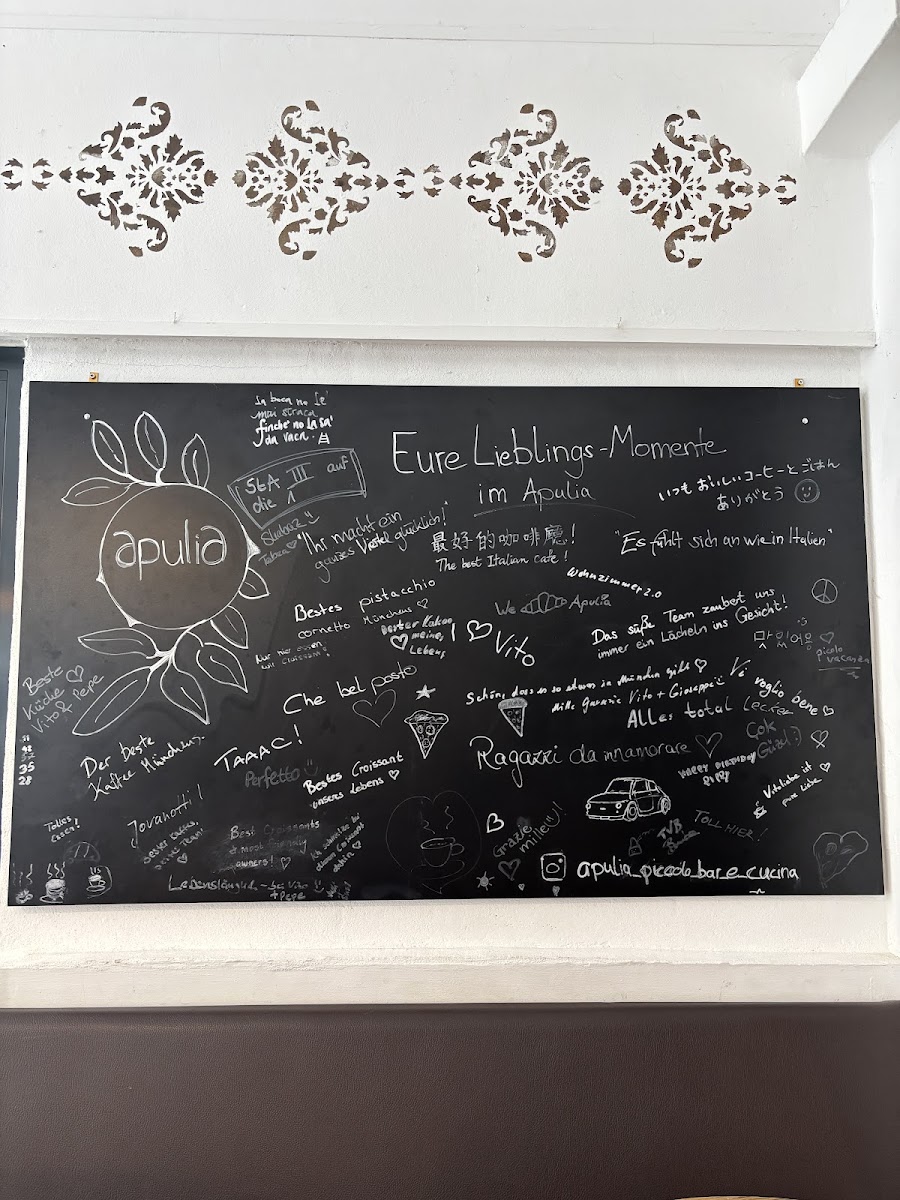 In boca no
mai straca
finche no la sa
da vaca.
Eure Lieblings-Momente
im Apulia
StA III auf
die 1
apulia
いつも おいしいコーヒーと ごはん
ありがとう
"Ihr macht ein
ganzes Viertel glücklich!
最好的咖啡廳!
The best Italian cafe!
"Es fühlt sich an wie in Italien"
Wohnzimmer 2.0
Bestes pistacchio
cornetto Münchens
We Apulia
Bester Kakao
meines
Lebens
Vito
Das süße Team zaubert uns
immer ein Lächeln ins Gesicht!
맛있어요
piccolo
vacanza
Beste
Küche
Vito & Pepe
Che bel posto
Schön, dass es so etwas in München gibt
Mille Grazie Vito + Giuseppe
Vi voglio bene
Alles total lecker
Der beste
Kaffee Münchens.
TAAAC!
Perfetto
Bestes Croissant
unseres Lebens
Ragazzi da innamorare
Cok
Güzel :)
HAPPY BIRTHDAY
PIPPI
35
28
Vitaliebe ist
pure Liebe
Tolles
Essen!
Jovanotti!
Bester Kaffee,
bestes Team!
Best Croissants
& most friendly
owners!
Ich schmelze bei
diesem Croissant
dahin
Grazie
mille!
TVB
TOLL HIER!
Lebenslänglich - bei Vito
+ Pepe
apulia_piccolo_bar_e_cucina